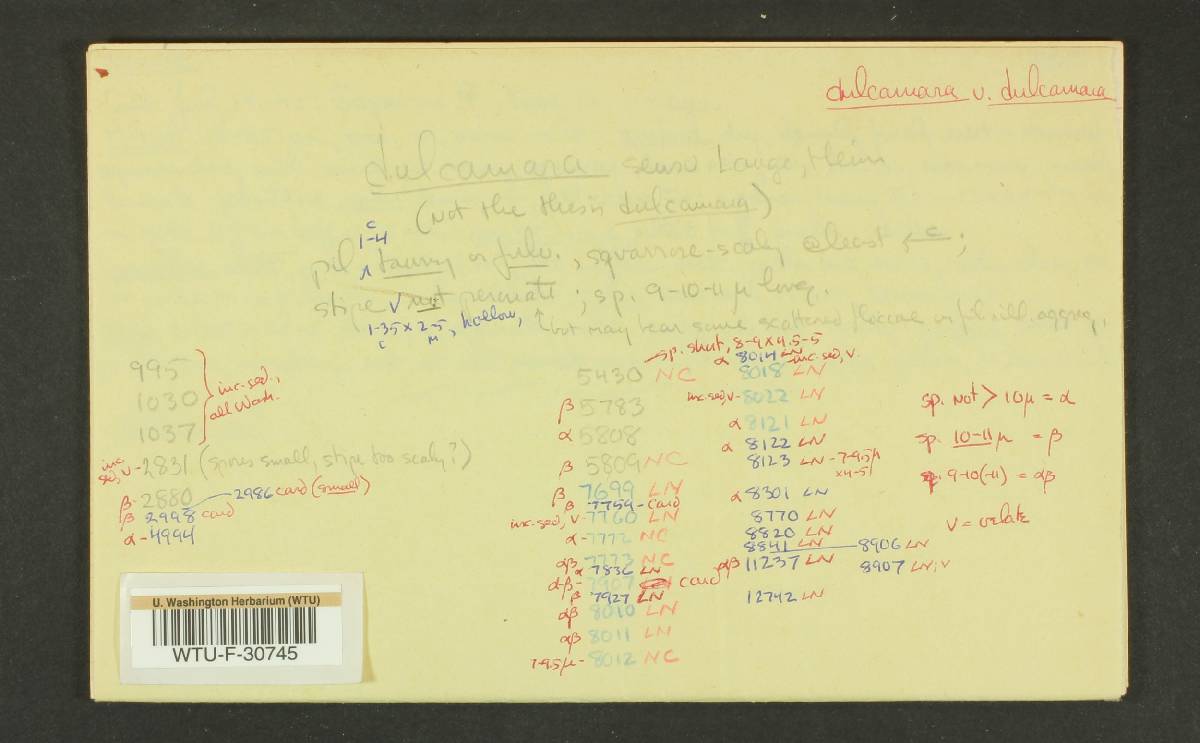 dulcamara v. dulcamara
dulcamara senso Lange, Heim
(not the thesis dulcamara)
c
1-4
pil ∧ tawny or fulv., squarrose-scaly @least ← c;
stipe √ not peronate; sp. 9-10-11 µ long.
1-35 x 2-5, hollow, ↑ but may bear some scattered floccae or fibrill. aggreg.
c M
995
1030
1037
} inc-sed., all Wash.
inc sed, v - 2831 (spores small, stipe too scaly?)
β - 2880
2986 card (small)
β 2998 card
α - 4994
sp. short, 8-9 x 4.5-5
5430 NC
β 5783
α 5808
β 5809 NC
β 7699 LN
β 7759 - card
inc-sed, v - 7760 LN
α - 7772 NC
αβ 7773 NC
α 7836 LN
αβ - 7907 card
β 7927 LN
αβ 8010 LN
αβ 8011 LN
7-9.5µ - 8012 NC
α 8014 LN
8018 LN - inc-sed, v.
inc-sed, v - 8022 LN
α 8121 LN
α 8122 LN
8123 LN - 7-9.5µ
x 4-5
α 8301 LN
8770 LN
8820 LN
8841 LN 8906 LN
αβ 11237 LN 8907 LN; v
12742 LN
sp. not > 10µ = α
sp. 10-11 µ = β
sp. 9-10(-11) = αβ
v = velate
U. Washington Herbarium (WTU)
WTU-F-30745